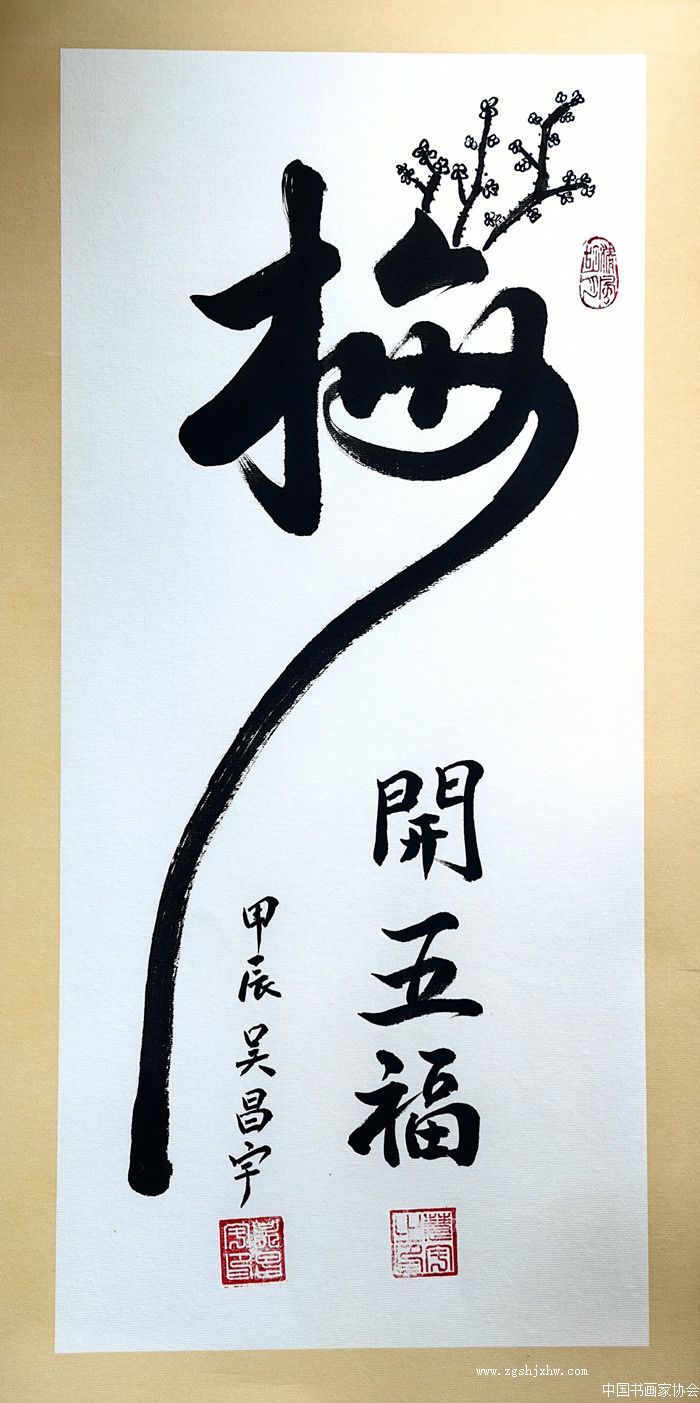 梅
開五福
甲辰吴昌宇
www.zgshjxhw.com
中国书画家协会